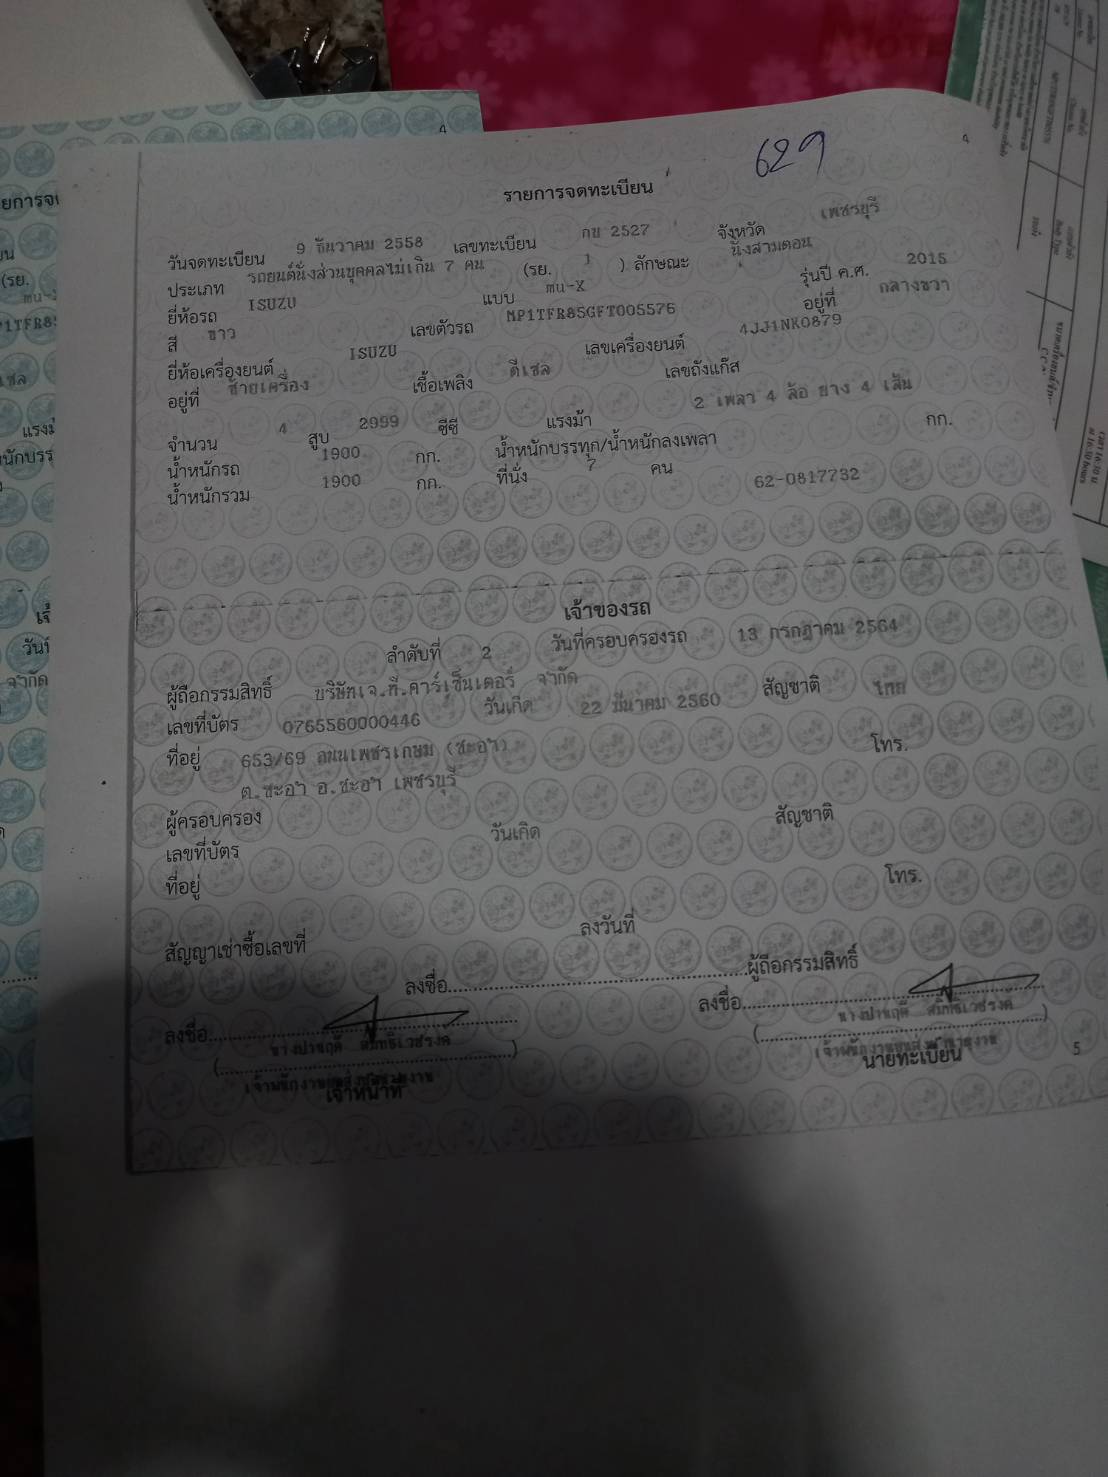 629
4
รายการจดทะเบียน
วันจดทะเบียน 9 ธันวาคม 2558 เลขทะเบียน กข 2527 จังหวัด เพชรบุรี
ประเภท รถยนต์นั่งส่วนบุคคลไม่เกิน 7 คน (รย. 1 ) ลักษณะ นั่งสามตอน
ยี่ห้อรถ ISUZU แบบ mu-X รุ่นปี ค.ศ. 2015
สี ขาว เลขตัวรถ MP1TFR85GFT005576 อยู่ที่ กลางขวา
ยี่ห้อเครื่องยนต์ ISUZU เลขเครื่องยนต์ 4JJ1NK0879
อยู่ที่ ซ้ายเครื่อง เชื้อเพลิง ดีเซล เลขถังแก๊ส
จำนวน 4 สูบ 2999 ซีซี แรงม้า 2 เพลา 4 ล้อ ยาง 4 เส้น
น้ำหนักรถ 1900 กก. น้ำหนักบรรทุก/น้ำหนักลงเพลา กก.
น้ำหนักรวม 1900 กก. ที่นั่ง 7 คน
62-0817732
เจ้าของรถ
ลำดับที่ 2 วันที่ครอบครองรถ 13 กรกฎาคม 2564
ผู้ถือกรรมสิทธิ์ บริษัทเจ.ที.คาร์เซ็นเตอร์ จำกัด
เลขที่บัตร 0765560000446 วันเกิด 22 มีนาคม 2560 สัญชาติ ไทย
ที่อยู่ 653/69 ถนนเพชรเกษม (ชะอำ) โทร.
ต.ชะอำ อ.ชะอำ เพชรบุรี
ผู้ครอบครอง
เลขที่บัตร วันเกิด สัญชาติ
ที่อยู่ โทร.
สัญญาเช่าซื้อเลขที่ ลงวันที่
ลงชื่อ ผู้ถือกรรมสิทธิ์
ลงชื่อ ลงชื่อ
เจ้าหน้าที่ นายทะเบียน
5